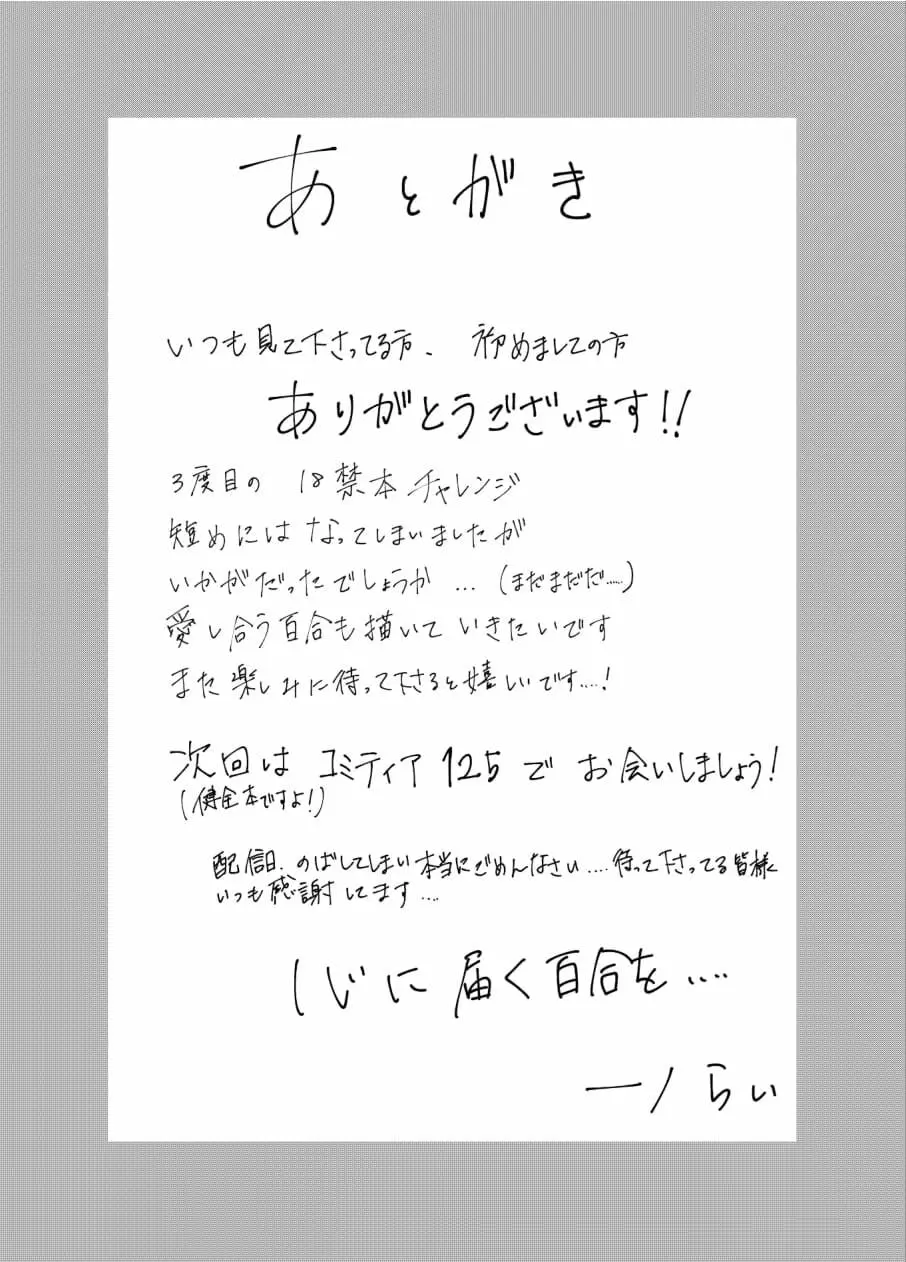 あとがき
いつも見て下さってる方、初めましての方
ありがとうございます!!
3度目の 18禁本チャレンジ
短めにはなってしまいましたが
いかがだったでしょうか…(まだまだだ……)
愛し合う百合も描いていきたいです
また楽しみに待って下さると嬉しいです…!
次回は コミティア125で お会いしましょう!
(健全本ですよ!)
配信日、のばしてしまい本当にごめんなさい…待って下さってる皆様
いつも感謝してます…
に届く百合を…
一ノらい